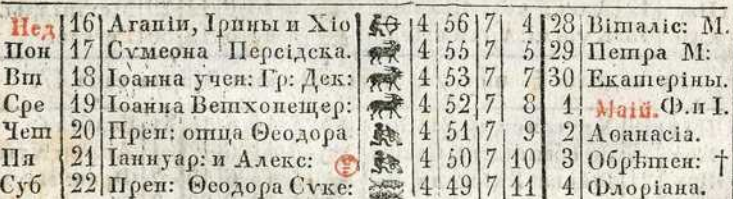 Нед 16 Агапіи, Ірины и Хіо 4 56 7 4 28 Віталіс: М.
Пон 17 Сѵмеона Персідска. 4 55 7 5 29 Петра М:
Вт 18 Іоанна учен: Гр: Дек: 4 53 7 7 30 Екатеріны.
Сре 19 Іоанна Ветхопещер: 4 52 7 8 1 Маій. Ф. и І.
Чет 20 Преп: отца Ѳеодора 4 51 7 9 2 Аѳанасіа.
Пя 21 Іаннуар: и Алекс: 4 50 7 10 3 Обрѣтен: †
Суб 22 Преп: Ѳеодора Сѵке: 4 49 7 11 4 Флоріана.